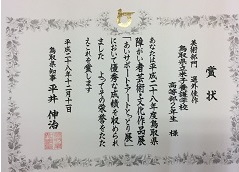 賞状
美術部門 選外佳作
鳥取県立米子養護学校
高等部 年生 様
あなたは平成二十八年度鳥取県
障がい者芸術・文化作品展
「あいサポート・アートとっとり展」
において優秀な成績を収められ
ました よってその栄誉をたた
えこれを賞します
平成二十八年十二月十日
鳥取県知事 平井伸治